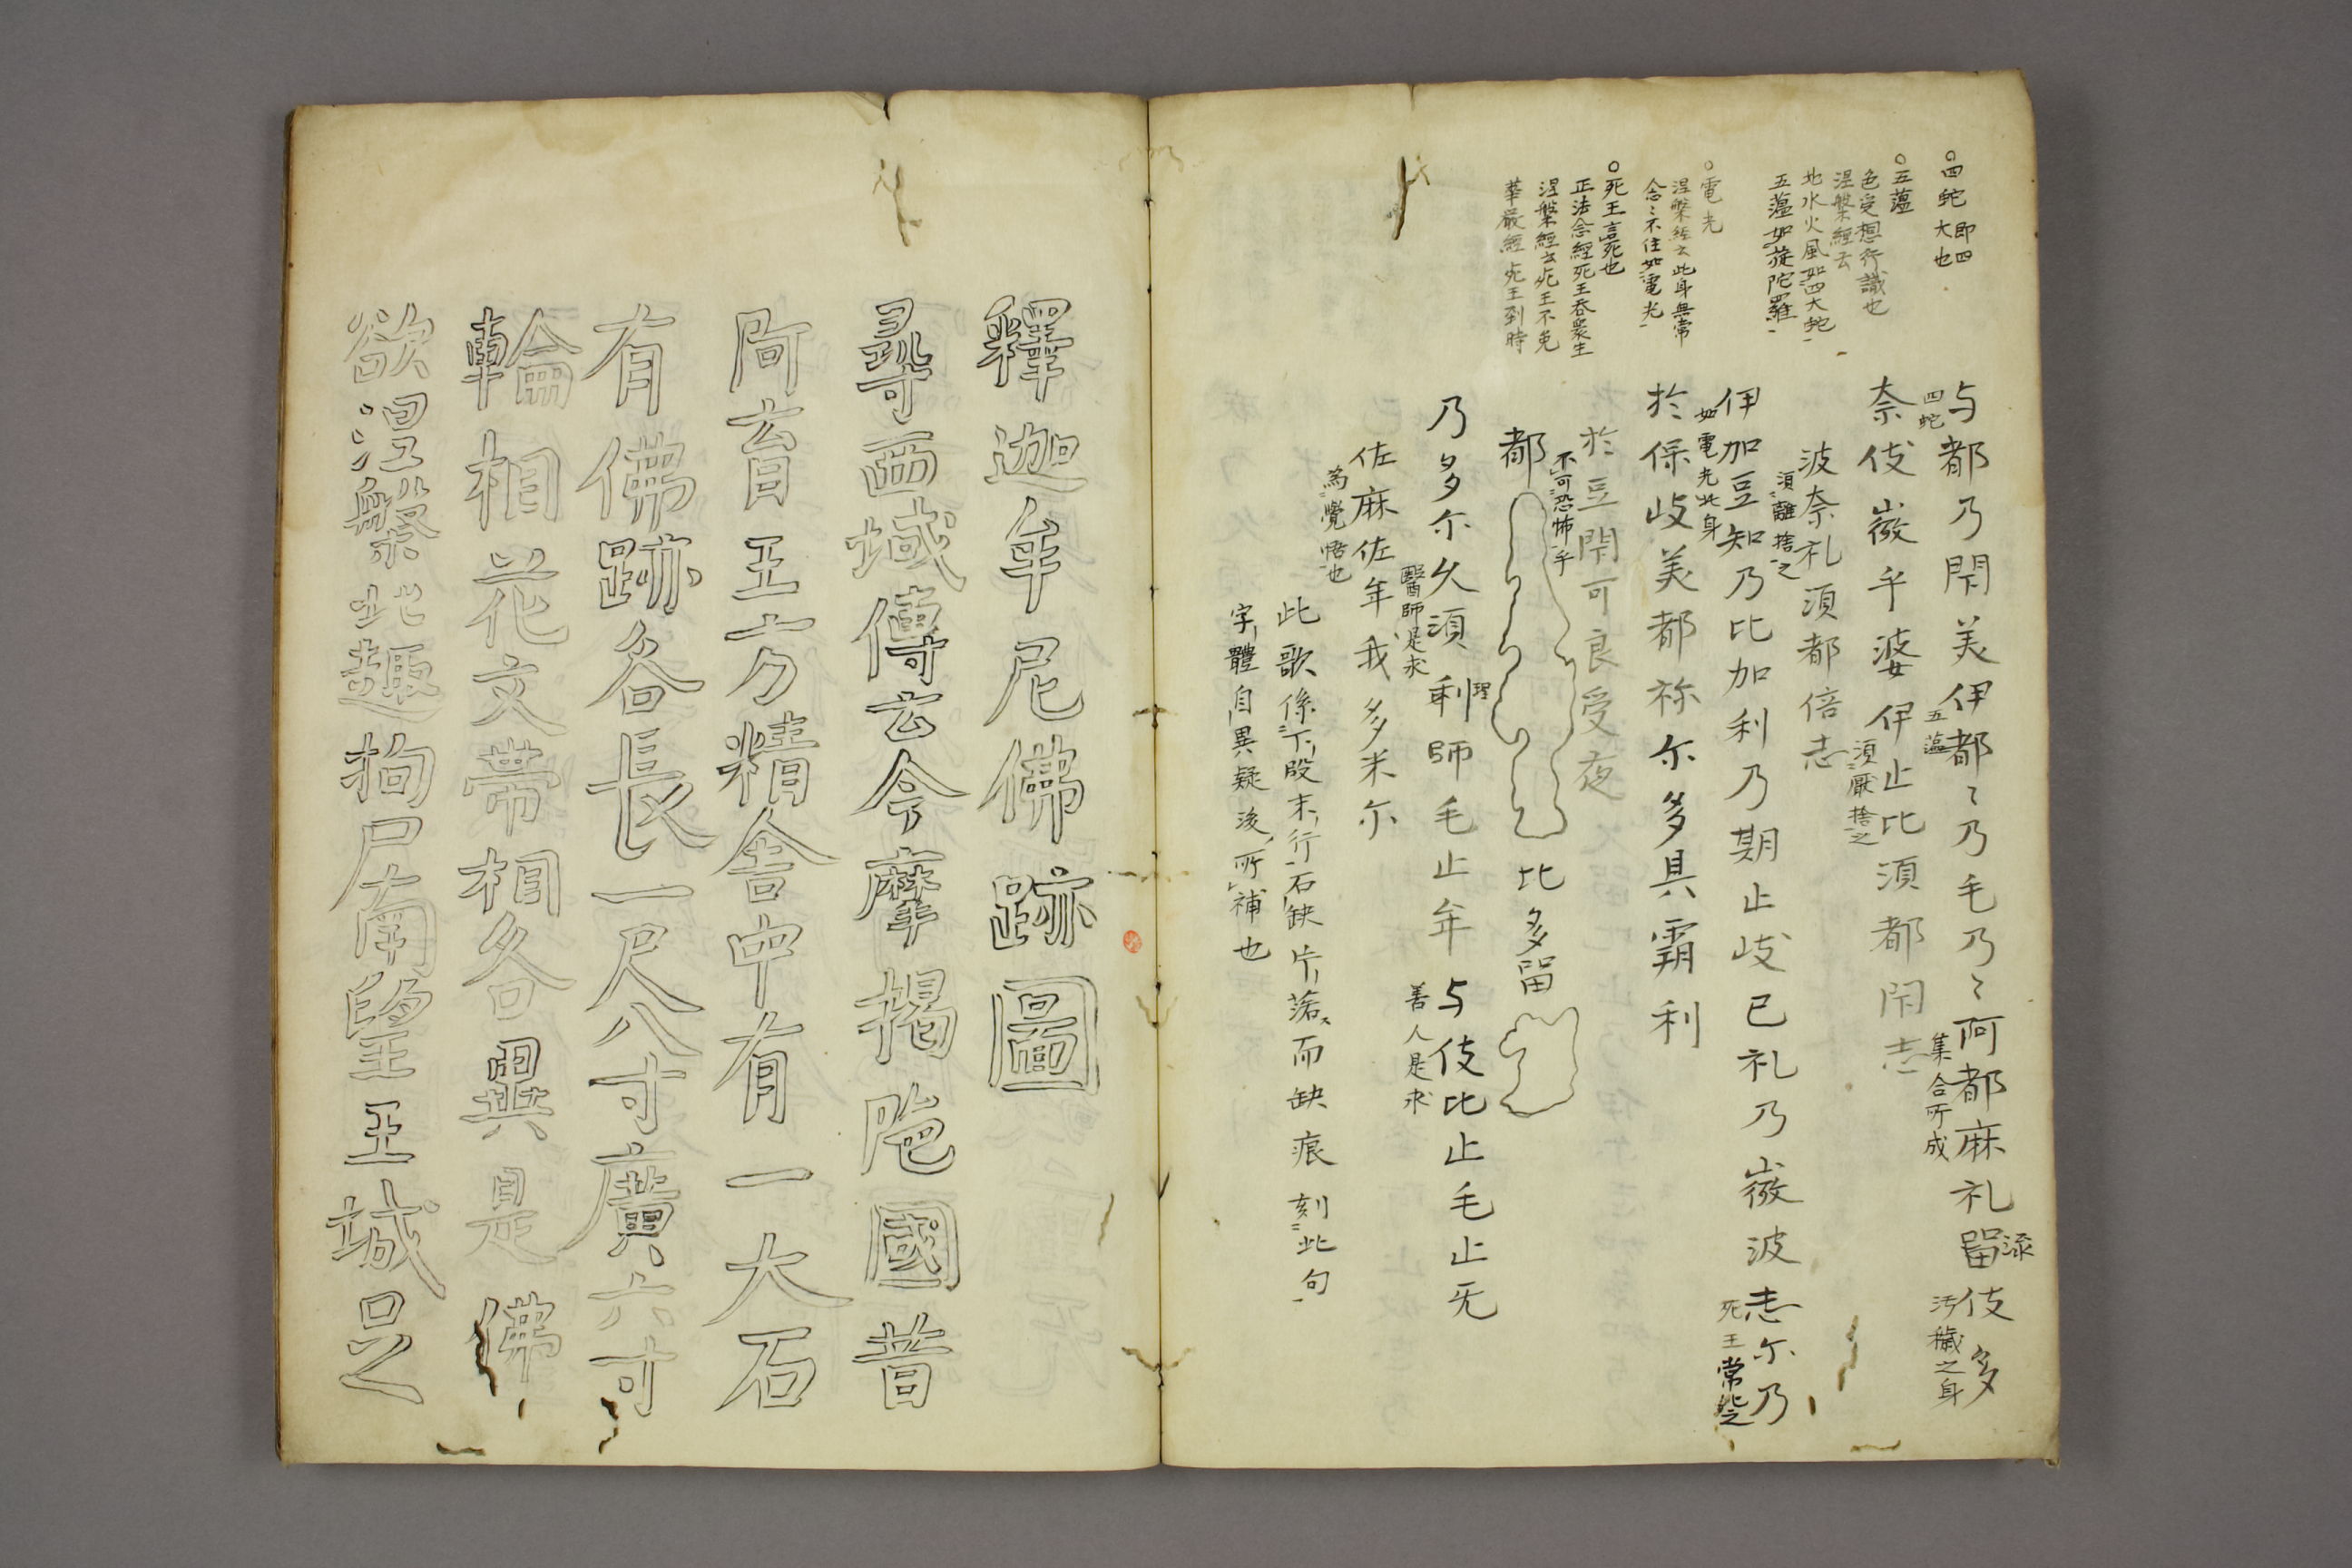 〇四蛇 即四大也
〇五薀
色受想行識也
涅槃経云
地水火風如四大蛇
五薀如旃陀羅
〇電光
涅槃経云此身無常
念〻不住如電光
〇死王言死也
正法念經死王吞衆生
涅槃經云死王不免
華嚴經死王到時
与都乃閇美伊都〻乃毛乃〻阿都麻礼留伎多
四蛇 五薀 集合所成 汚穢之身
奈伎微乎婆伊止比須都閇志
須厭捨之
波奈礼須都倍志
須離捨之
伊加豆知乃比加利乃期止岐已礼乃微波志尓乃
如電光此身 死王常坐之
於保岐美都祢尓多具霸利
於豆閇可良受夜
不可恐怖乎
都 比多留
乃多尓久須利師毛止牟与伎比止毛止无
醫師是求 善人是求
佐麻佐牟我多米尓
為覺悟也
此歌係下段末行石缺片落而缺痕刻此句
字體自異疑後所補也
釋迦牟尼佛跡圖
尋西域傳云今摩揭陁國昔
阿育王方精舍中有一大石
有佛跡各長一尺八寸廣六寸
輪相花文帶相各異是佛
欲涅槃北趣拘尸南望王城足